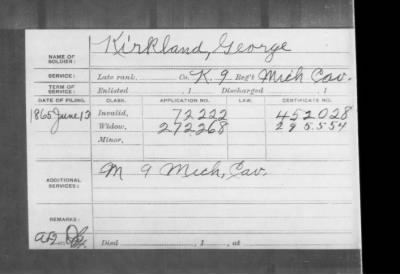 NAME OF SOLDIER: Kirkland, George
SERVICE: Late rank, Co. K. 9 Reg't Mich Cav.
TERM OF SERVICE: Enlisted , 1 Discharged , 1
DATE OF FILING. CLASS. APPLICATION NO. LAW. CERTIFICATE NO.
1865 June 13 Invalid, 72222 452028
Widow, 272268 295554
Minor,
ADDITIONAL SERVICES: M 9 Mich, Cav.
REMARKS:
Died , 1 , at